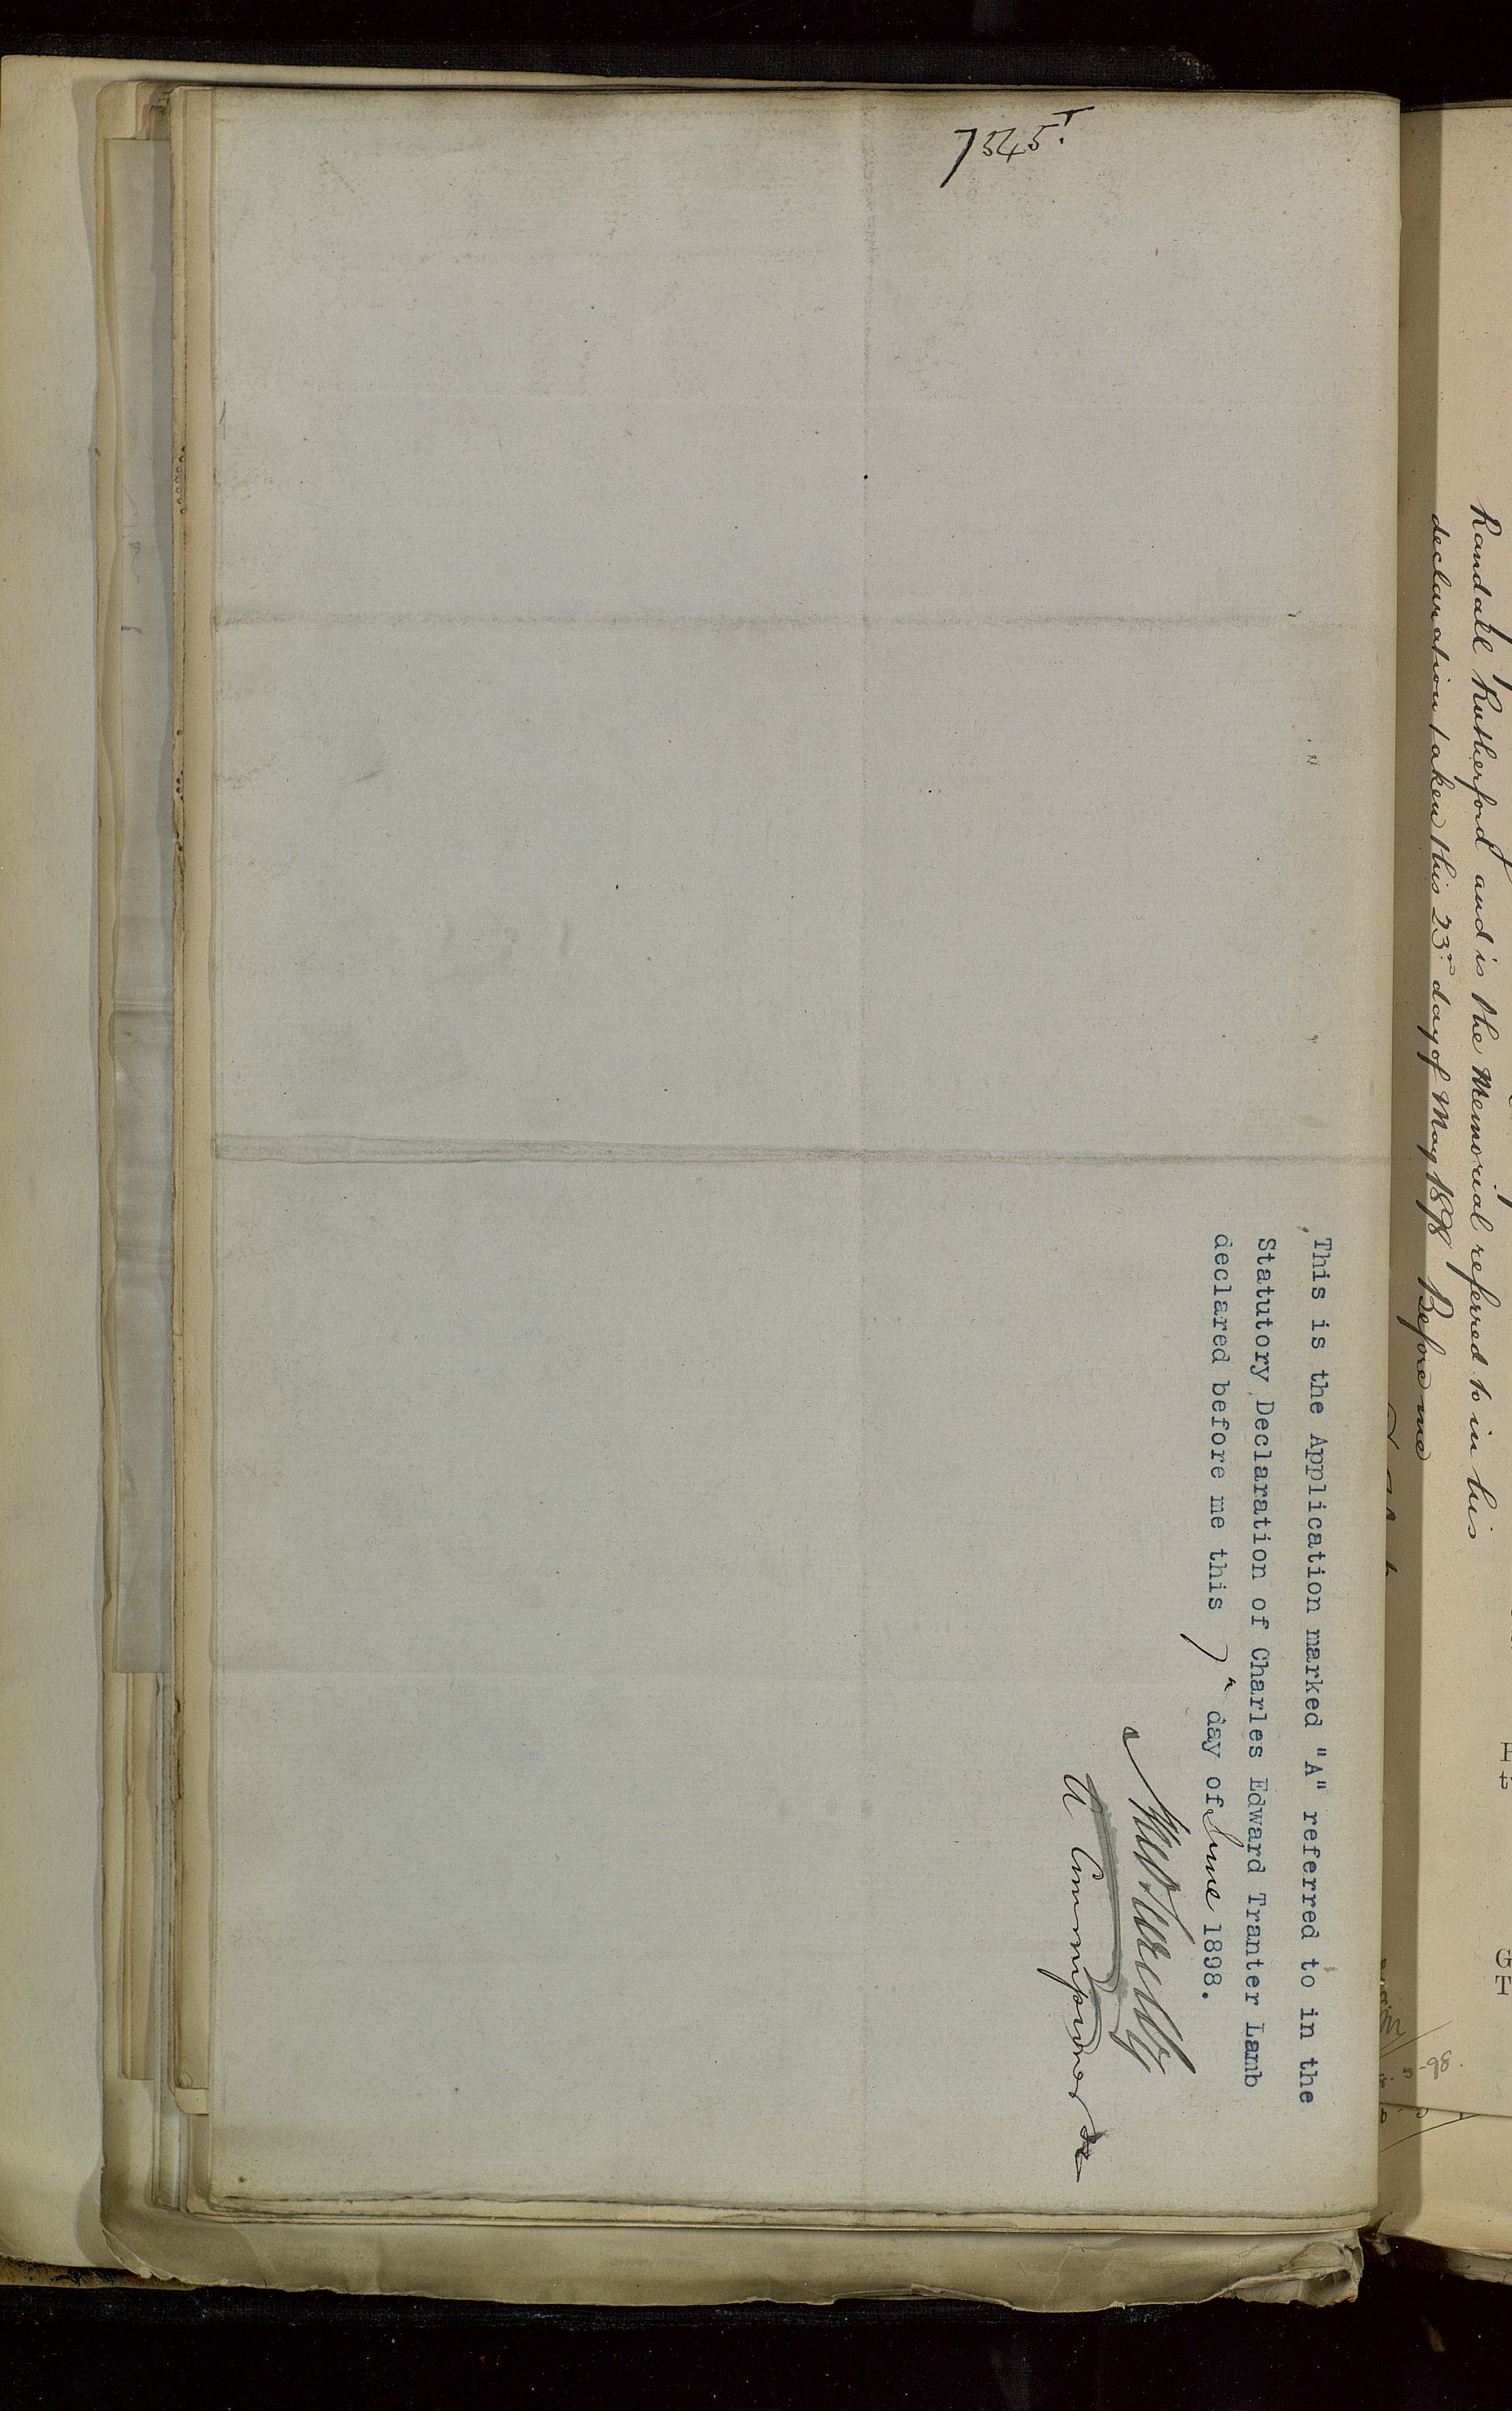 7545.T
This is the Application marked "A" referred to in the
Statutory Declaration of Charles Edward Tranter Lamb
declared before me this 7th day of June 1898.
A Commissioner &c
Randall Rutherford and is the Memorial referred to in his
declaration taken this 23rd day of May 1898 Before me